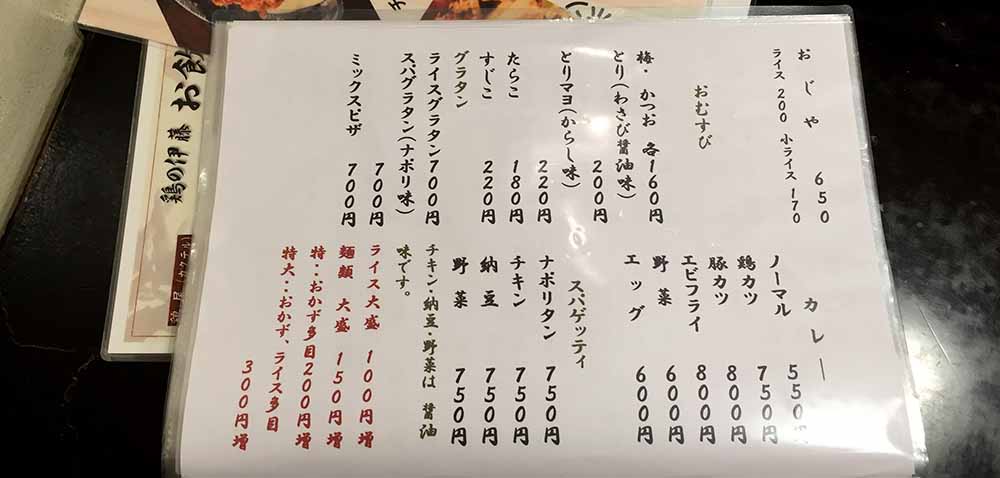 おじや 650
ライス 200 小ライス 170
おむすび
梅・かつお 各160円
とり(わさび醤油味)
200円
とりマヨ(からし味)
220円
たらこ 180円
すじこ 220円
グラタン
ライスグラタン700円
スパグラタン(ナポリ味)
700円
ミックスピザ 700円
カレー
ノーマル 550円
鶏カツ 750円
豚カツ 800円
エビフライ 800円
野菜 600円
エッグ 600円
スパゲッティ
ナポリタン 750円
チキン 750円
納豆 750円
野菜 750円
チキン・納豆・野菜は醤油
味です。
ライス大盛 100円増
麺類 大盛 150円増
特‥おかず多目200円増
特大‥おかず、ライス多目
300円増
お飲
鶏の伊藤